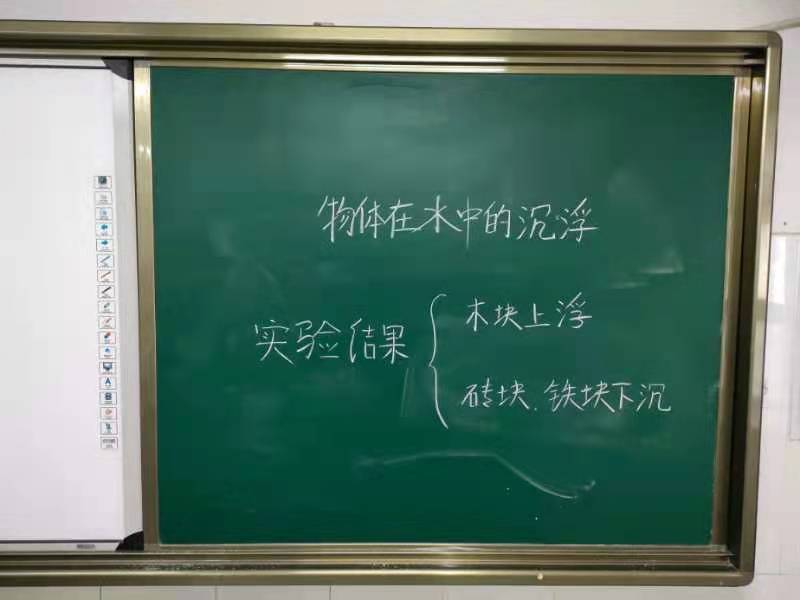 物体在水中的沉浮
实验结果
木块上浮
砖块、铁块下沉